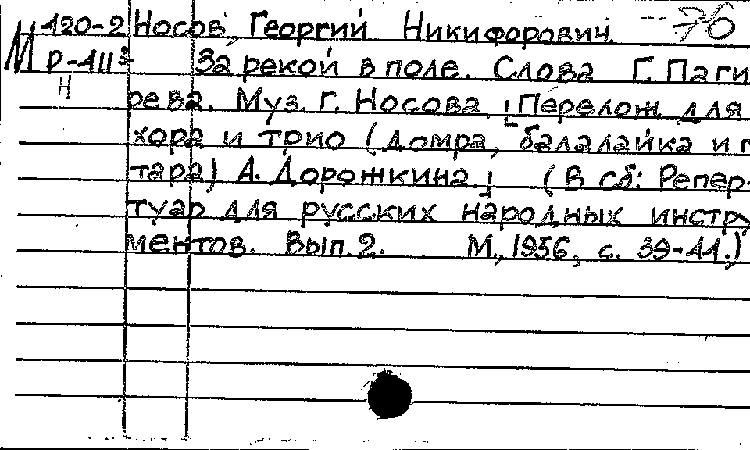 М 120-2 Носов, Георгий Никифорович 76
Р-411³ За рекой в поле. Слова Г. Паги
Н рева. Муз. Г. Носова. [Перелож. для
хора и трио (домра, балалайка и г
тара) А. Дорожкина] (В сб: Репер-
туар для русских народных инстру
ментов. Вып. 2. М., 1956, с. 39-44.)